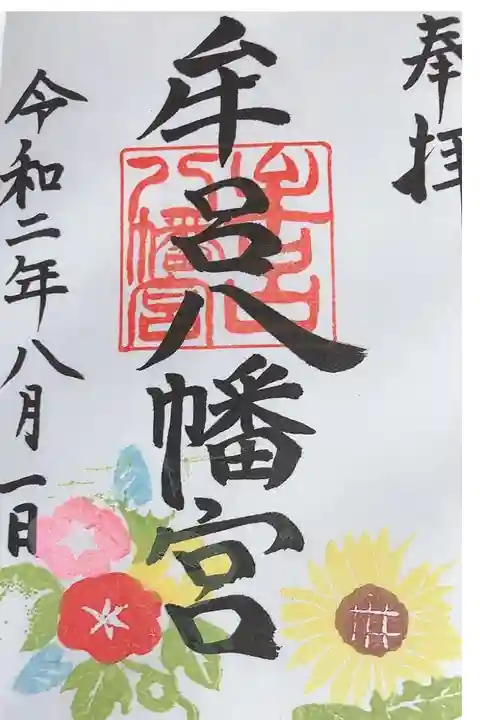 奉拝
牟呂八幡宮
牟呂八幡宮
令和二年八月一日